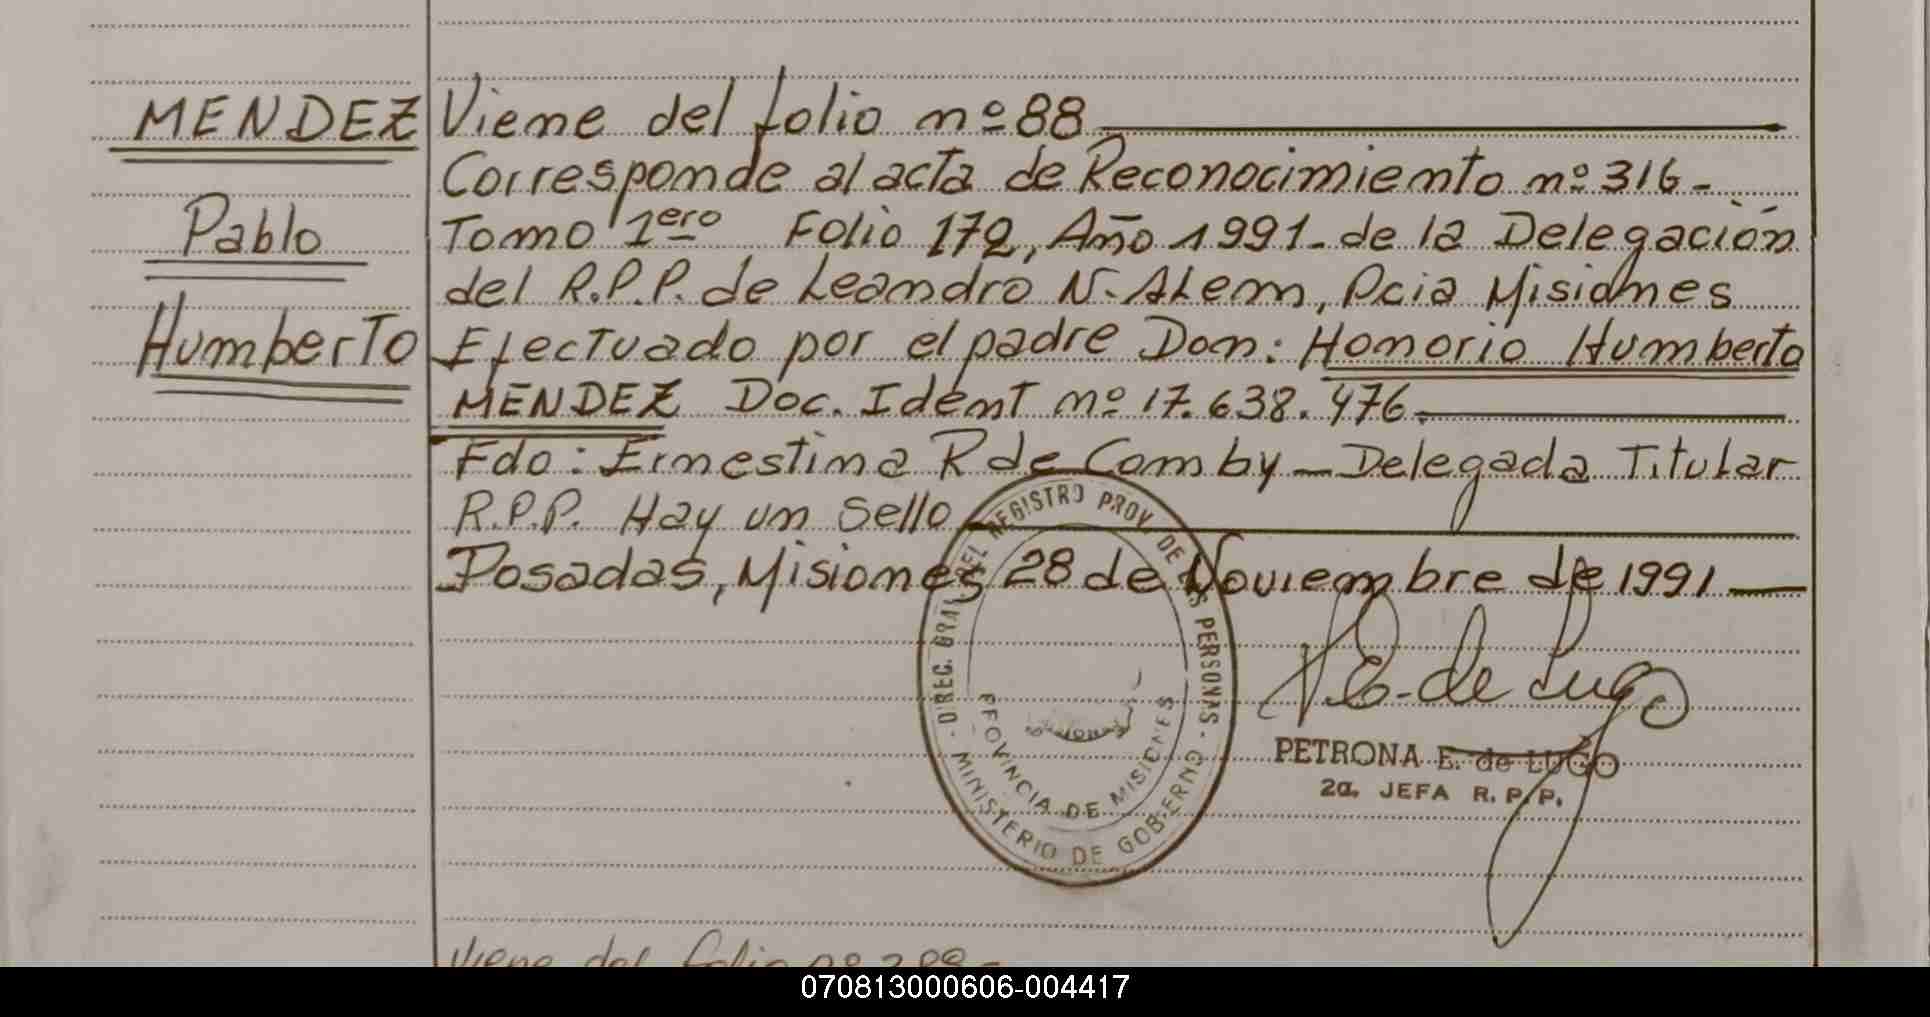 MENDEZ
Pablo
Humberto
Viene del folio nº 88
Corresponde al acta de Reconocimiento nº 316-
Tomo 1ero Folio 172, Año 1991- de la Delegación
del R.P.P. de Leandro N. ALem, Pcia Misiones
Efectuado por el padre Don: Honorio Humberto
MENDEZ Doc. Ident nº 17.638.476.
Fdo: Ernestina R de Comby - Delegada Titular
R.P.P. Hay un sello
Posadas, Misiones 28 de Noviembre de 1991
DIREC. GRAL. DEL REGISTRO PROV. DE LAS PERSONAS -
MINISTERIO DE GOBIERNO
PROVINCIA DE MISIONES
P.E. de Lugo
PETRONA E. de LUGO
2a. JEFA R.P.P.
Viene del folio nº
070813000606-004417